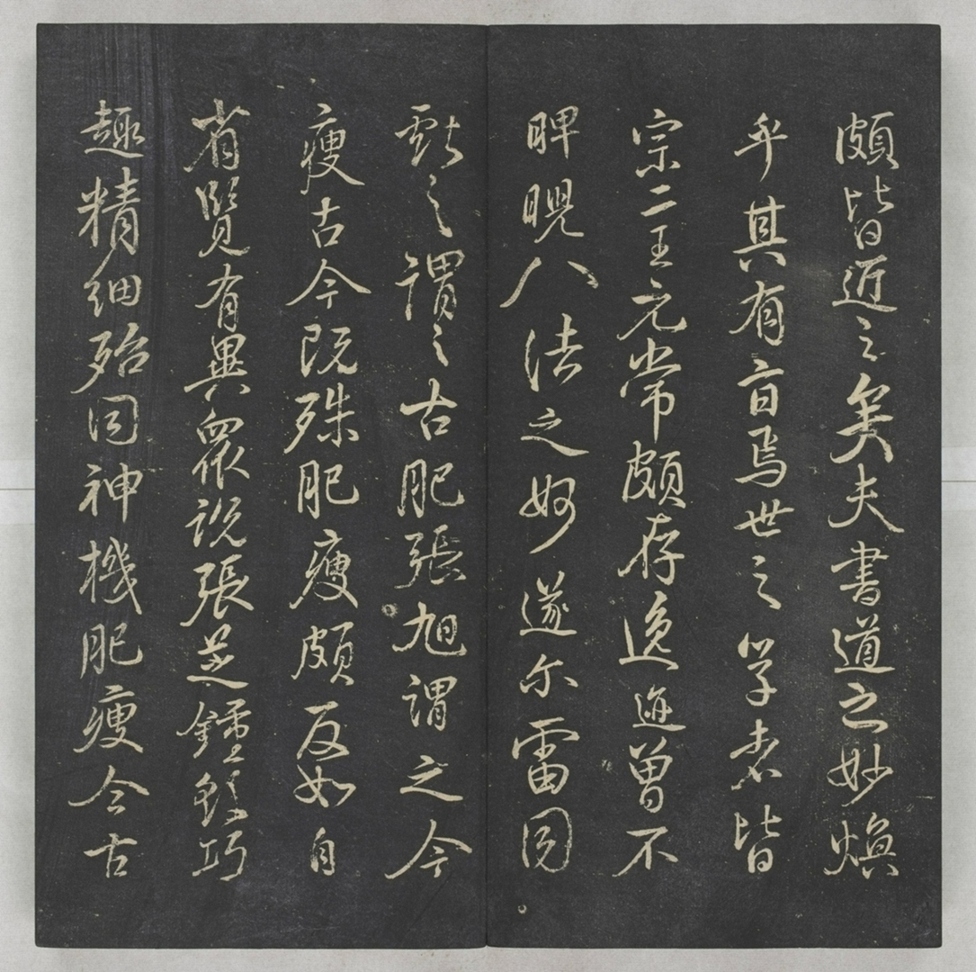 頗皆近之矣夫書道之妙煥
乎其有旨焉世之學者皆
宗二王元常頗存逸迹曾不
睥睨八法之妙遂尔雷同
獻之謂之古肥張旭謂之今
瘦古今既殊肥瘦頗反如自
省覽有異衆說張芝鍾繇巧
趣精細殆同神機肥瘦今古